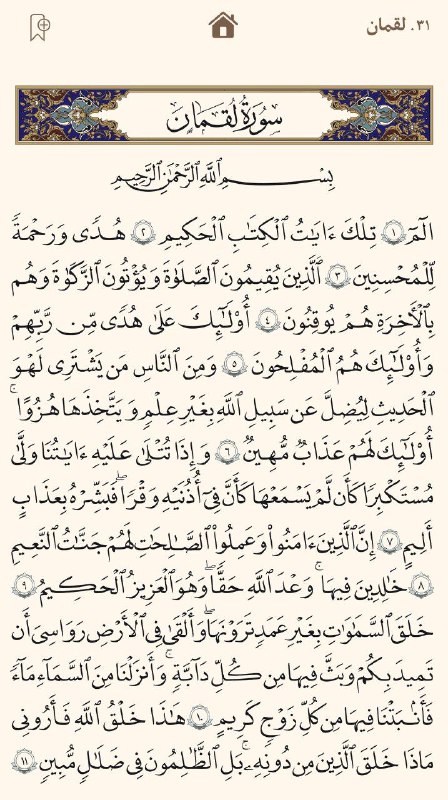 ٣١. لقمان
سُورَةُ لُقۡمَان
بِسۡمِ ٱللَّهِ ٱلرَّحۡمَٰنِ ٱلرَّحِيمِ
الٓمٓ ١ تِلۡكَ ءَايَٰتُ ٱلۡكِتَٰبِ ٱلۡحَكِيمِ ٢ هُدٗى وَرَحۡمَةٗ
لِّلۡمُحۡسِنِينَ ٣ ٱلَّذِينَ يُقِيمُونَ ٱلصَّلَوٰةَ وَيُؤۡتُونَ ٱلزَّكَوٰةَ وَهُم
بِٱلۡأٓخِرَةِ هُمۡ يُوقِنُونَ ٤ أُوْلَٰٓئِكَ عَلَىٰ هُدٗى مِّن رَّبِّهِمۡۖ
وَأُوْلَٰٓئِكَ هُمُ ٱلۡمُفۡلِحُونَ ٥ وَمِنَ ٱلنَّاسِ مَن يَشۡتَرِي لَهۡوَ
ٱلۡحَدِيثِ لِيُضِلَّ عَن سَبِيلِ ٱللَّهِ بِغَيۡرِ عِلۡمٖ وَيَتَّخِذَهَا هُزُوًاۚ
أُوْلَٰٓئِكَ لَهُمۡ عَذَابٞ مُّهِينٞ ٦ وَإِذَا تُتۡلَىٰ عَلَيۡهِ ءَايَٰتُنَا وَلَّىٰ
مُسۡتَكۡبِرٗا كَأَن لَّمۡ يَسۡمَعۡهَا كَأَنَّ فِيٓ أُذُنَيۡهِ وَقۡرٗاۖ فَبَشِّرۡهُ بِعَذَابٍ
أَلِيمٍ ٧ إِنَّ ٱلَّذِينَ ءَامَنُواْ وَعَمِلُواْ ٱلصَّٰلِحَٰتِ لَهُمۡ جَنَّٰتُ ٱلنَّعِيمِ
٨ خَٰلِدِينَ فِيهَاۖ وَعۡدَ ٱللَّهِ حَقّٗاۚ وَهُوَ ٱلۡعَزِيزُ ٱلۡحَكِيمُ ٩
خَلَقَ ٱلسَّمَٰوَٰتِ بِغَيۡرِ عَمَدٖ تَرَوۡنَهَاۖ وَأَلۡقَىٰ فِي ٱلۡأَرۡضِ رَوَٰسِيَ أَن
تَمِيدَ بِكُمۡ وَبَثَّ فِيهَا مِن كُلِّ دَآبَّةٖۚ وَأَنزَلۡنَا مِنَ ٱلسَّمَآءِ مَآءٗ
فَأَنۢبَتۡنَا فِيهَا مِن كُلِّ زَوۡجٖ كَرِيمٍ ١٠ هَٰذَا خَلۡقُ ٱللَّهِ فَأَرُونِي
مَاذَا خَلَقَ ٱلَّذِينَ مِن دُونِهِۦۚ بَلِ ٱلظَّٰلِمُونَ فِي ضَلَٰلٖ مُّبِينٖ ١١